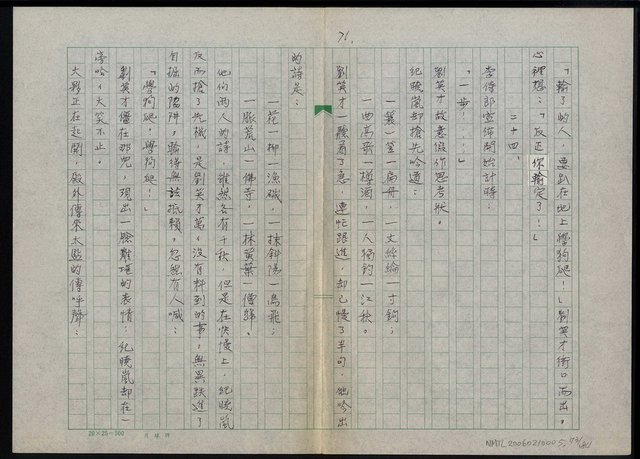 71.
「輸了的人，要趴在地上學狗爬！」劉英才衝口而出。
心裡想：「反正你輸定了！」
二十四、
李侍郎宣佈開始計時：
「一步！……」
劉英才故意假作思考狀。
紀曉嵐却搶先吟道：
一蓑一笠一扁舟，一丈絲綸一寸鉤；
一曲高歌一樽酒，一人獨釣一江秋。
劉英才一聽着了急，連忙跟進，却已慢了半句，他吟出
的詩是：
一花一柳一漁磯，一抹斜陽一鳥飛；
一脈荒山一佛寺，一抹黃葉一僧歸。
他們兩人的詩，雖然各有千秋，但是在快慢上，紀曉嵐
反而搶了先機，是劉英才萬萬沒有料到的事，無異跌進了
自掘的陷阱，輸得無話抵賴，忽聽有人喊：
「學狗爬，學狗爬！」
劉英才僵在那兒，現出一臉難堪的表情，紀曉嵐却在一
旁哈哈大笑不止。
大夥正在起鬨，殿外傳來太監的傳呼聲：
20×25=500
NMTL20060210005